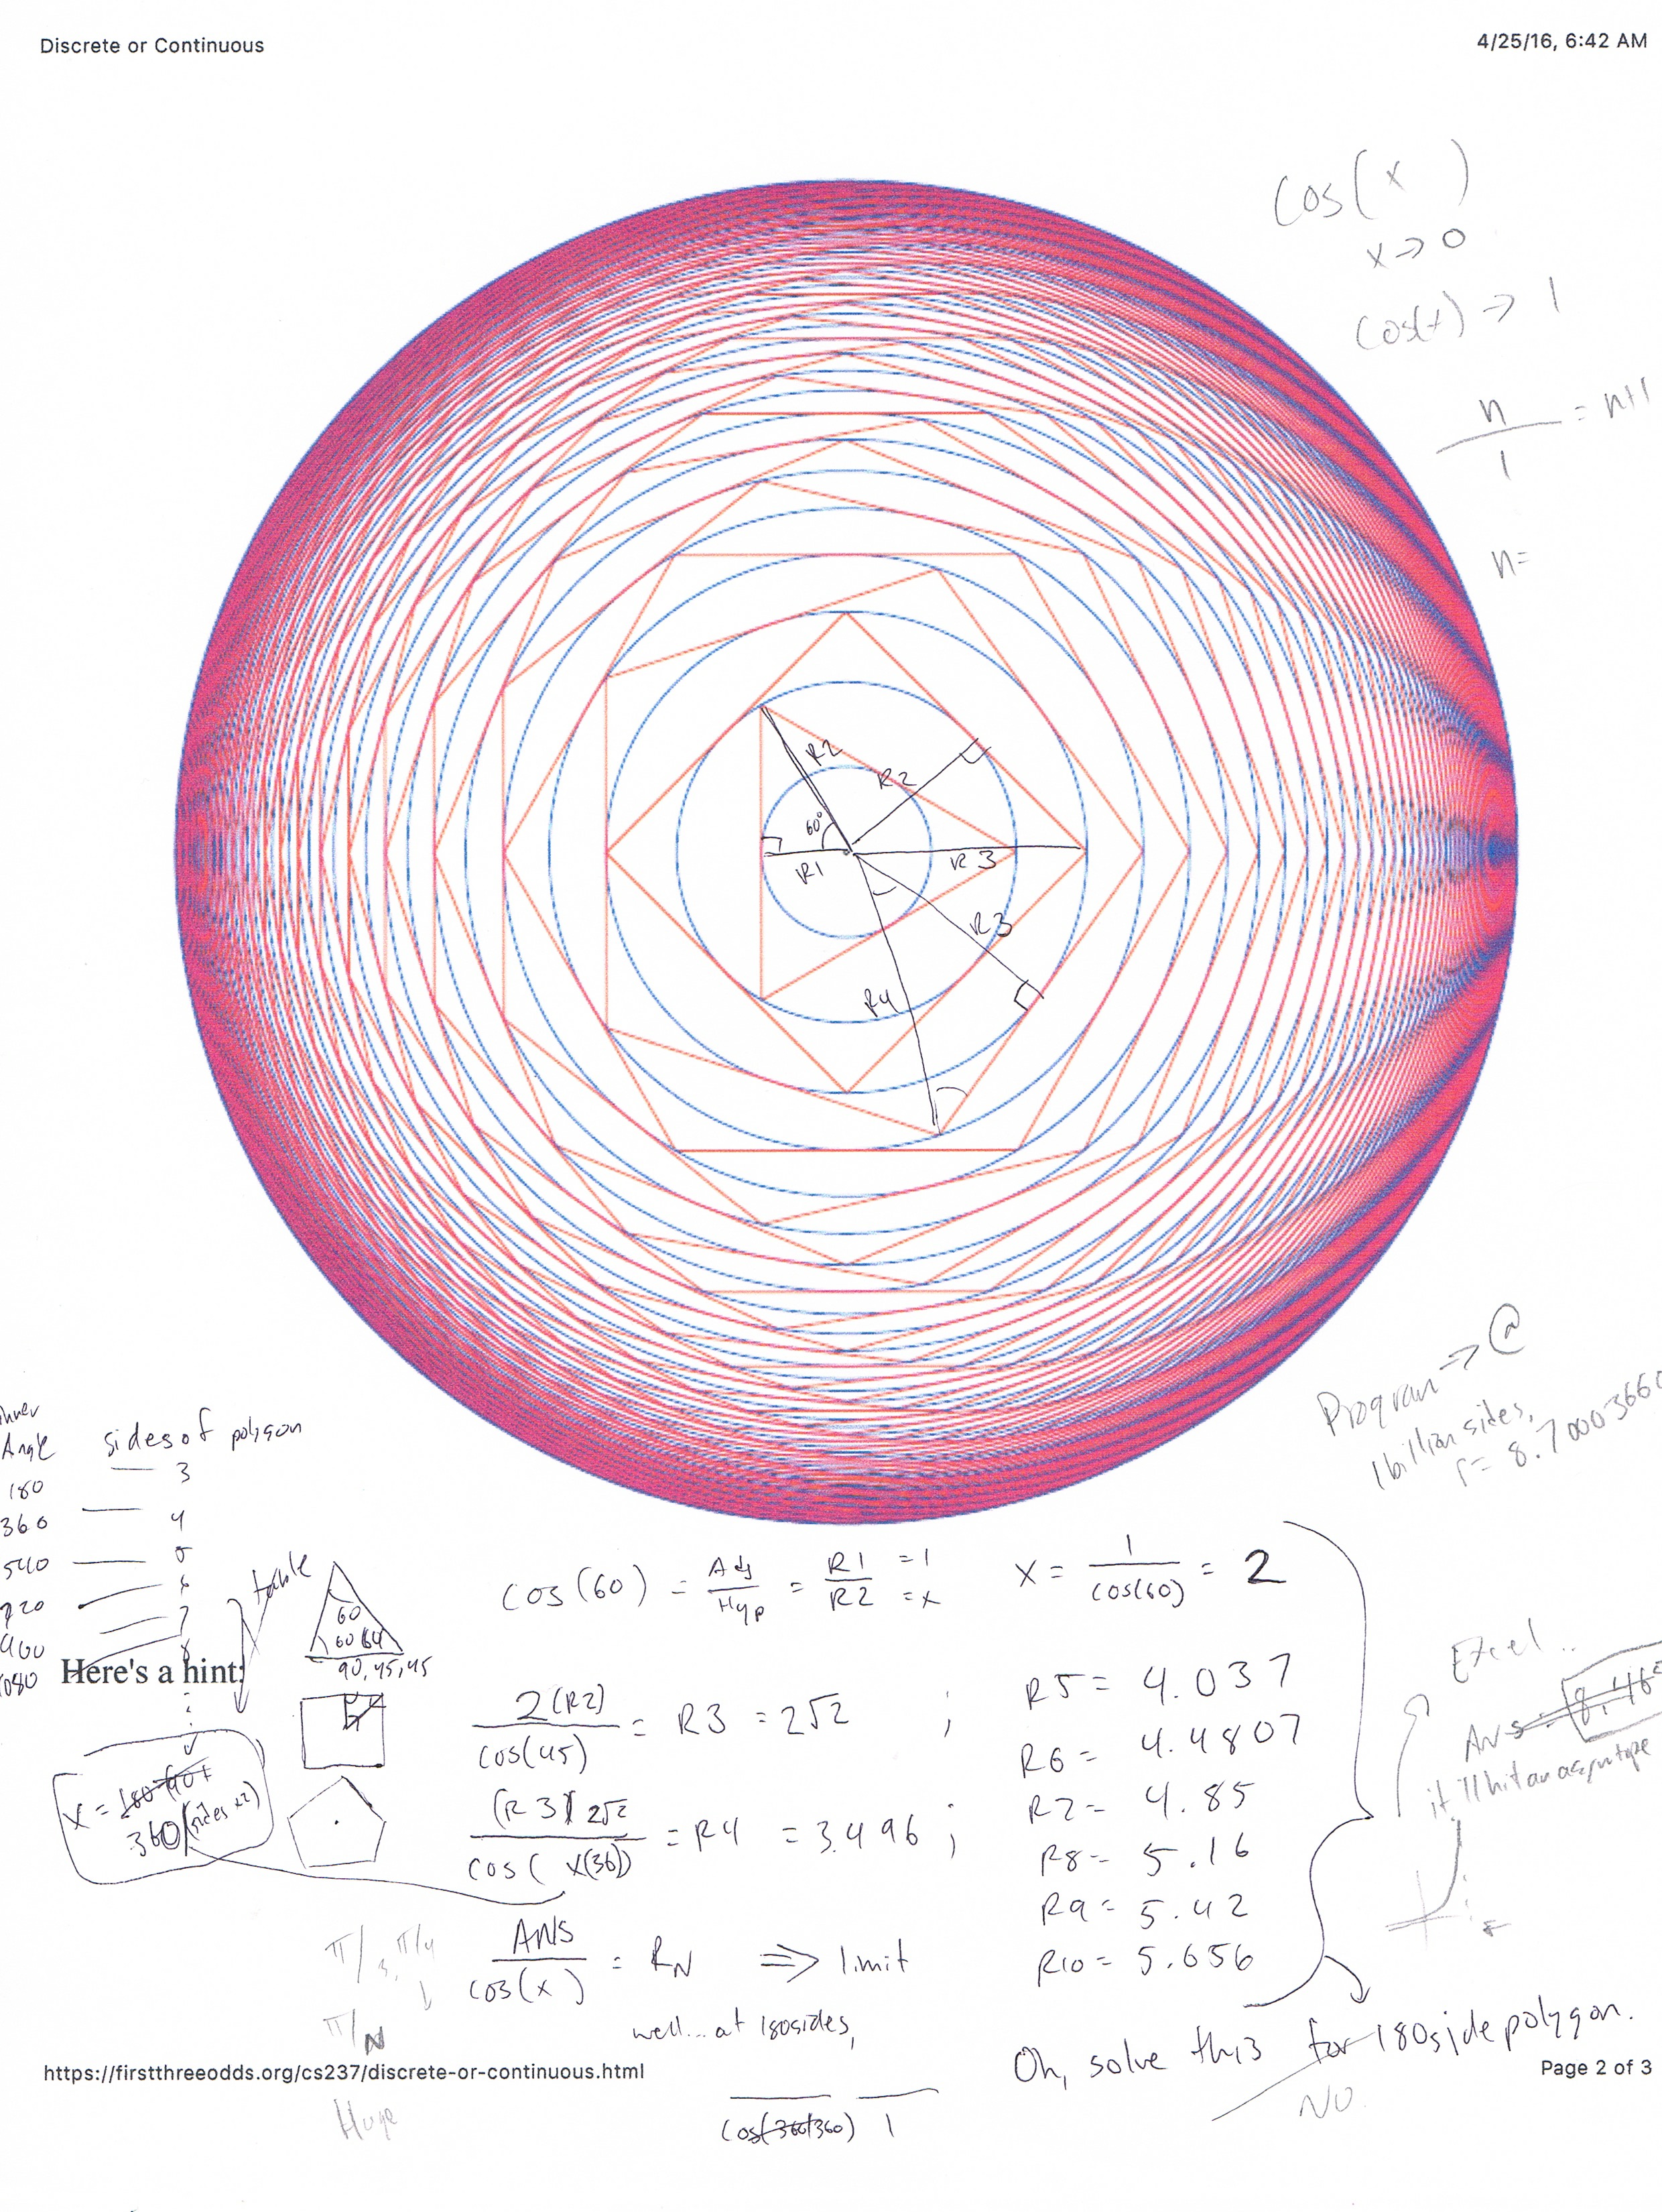 Discrete or Continuous
4/25/16, 6:42 AM
Cos(x )
x → 0
Cos(x) → 1
n
— = n+1
1
n=
R2
R2
60°
R1
R3
R3
R4
Program →
1 billion sides,
r = 8.70003660
Angle sides of polygon
180 — 3
360 — 4
540 — 5
720 — 6
7
1080 8
table
60
60 60
90,45,45
Here's a hint:
X =
360/(sides ×2)
cos(60) = Adj/Hyp = R1/R2 =1 =x
X = 1/cos(60) = 2
2(R2)/cos(45) = R3 = 2√2 ;
(R3) 2√2/cos( x(36)) = R4 = 3.496 ;
ANS/cos(x) = RN ⇒ limit
R5 = 4.037
R6 = 4.4807
R7 = 4.85
R8 = 5.16
R9 = 5.42
R10 = 5.656
Excel ..
Ans = 8.46
it'll hit an asymtope
π/3, π/4
π/N
well... at 180sides,
Oh, solve this for 180side polygon.
NO
https://firstthreeodds.org/cs237/discrete-or-continuous.html
Page 2 of 3
Huge
cos(360/360) 1